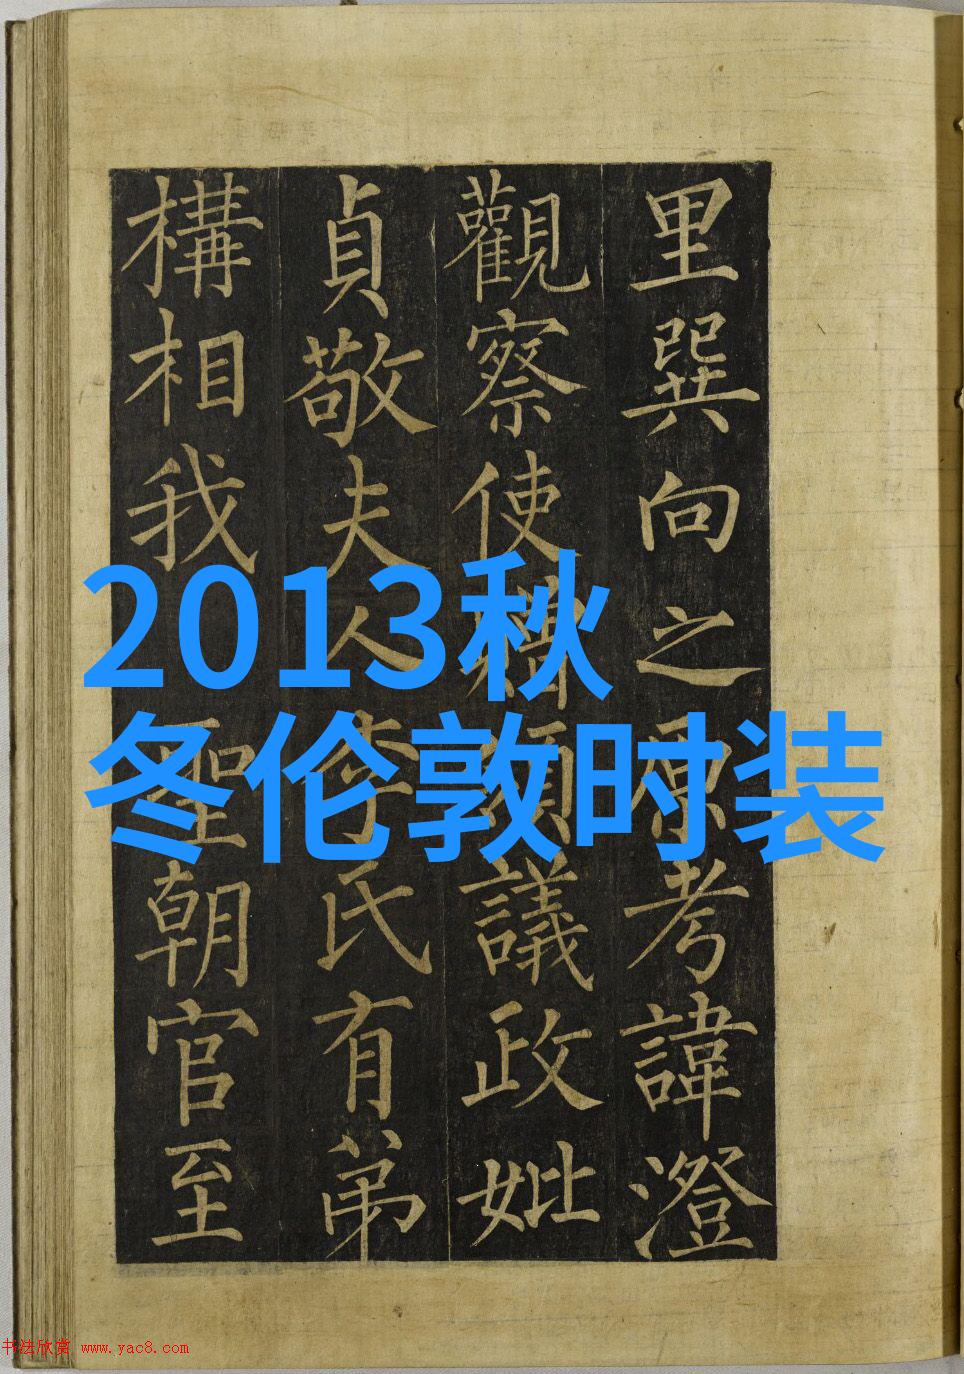 里巽向之原考諱澄
觀察使贈領議政妣
貞敬夫人李氏有弟
構相我 聖朝官至
2013秋
冬伦敦时装
书法欣赏 www.yac8.com